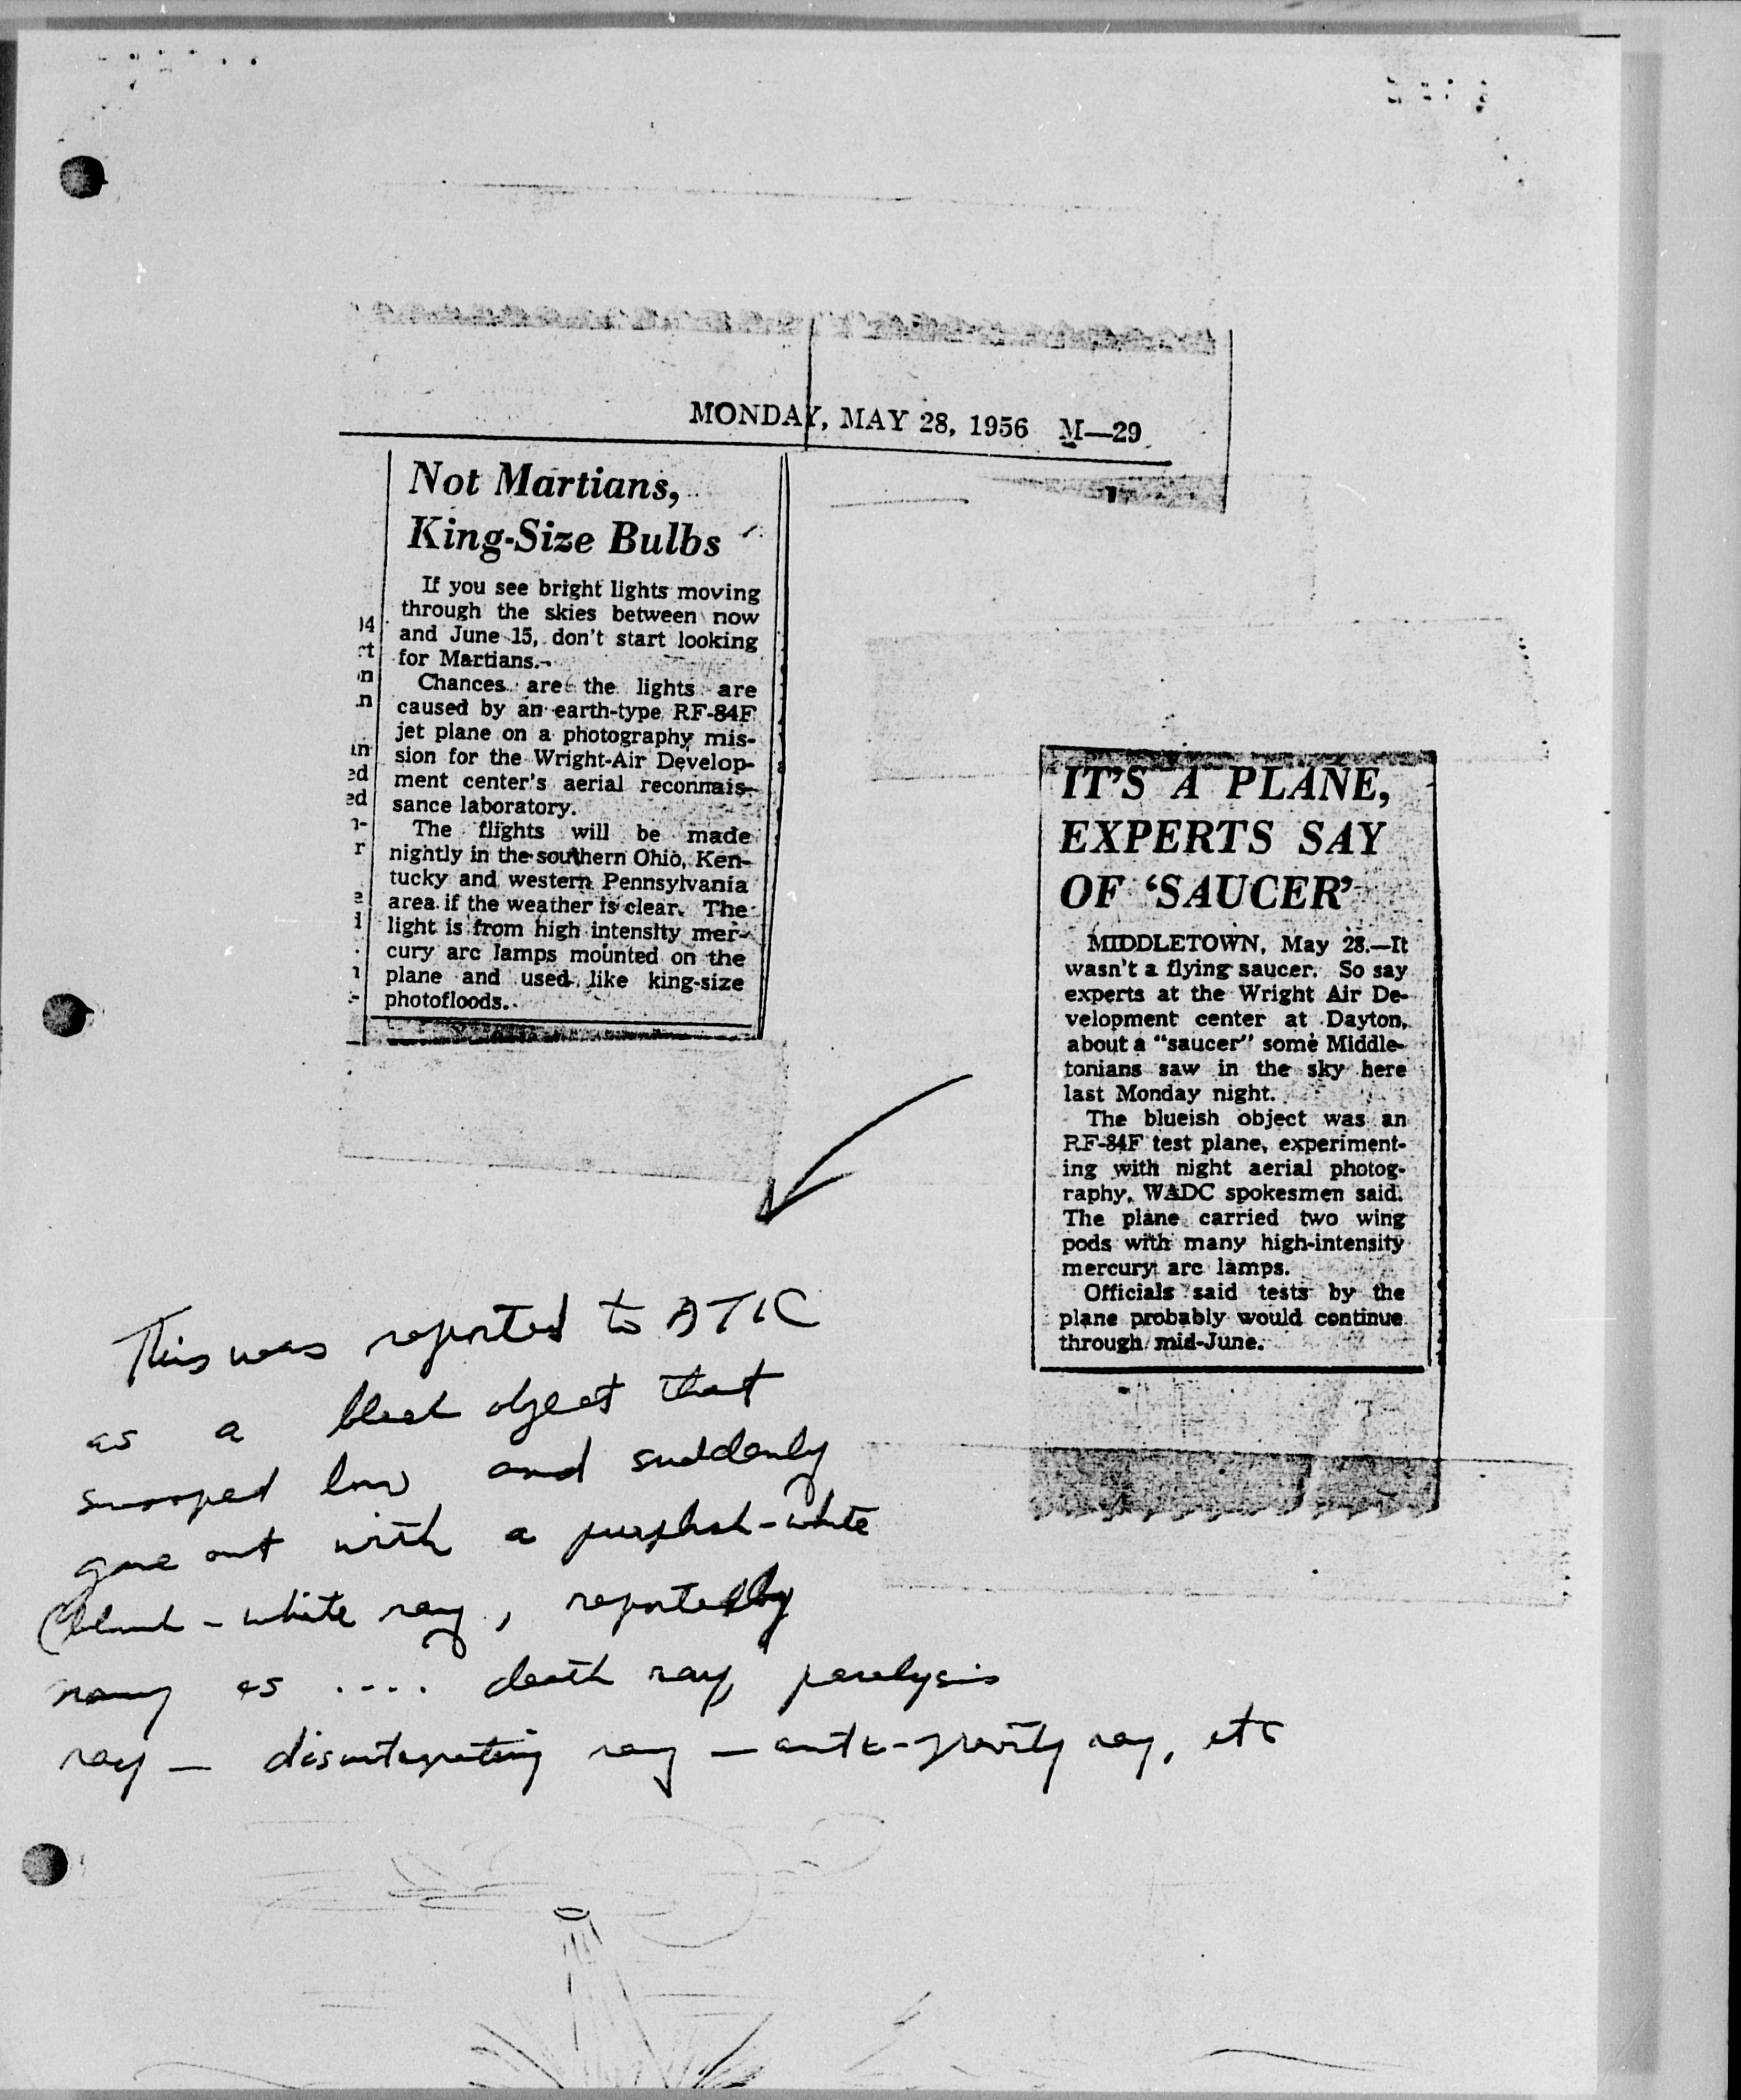 MONDAY, MAY 28, 1956 M—29
Not Martians,
King-Size Bulbs
If you see bright lights moving
through the skies between now
and June 15, don't start looking
for Martians.
Chances are the lights are
caused by an earth-type RF-84F
jet plane on a photography mis-
sion for the Wright-Air Develop-
ment center's aerial reconnais-
sance laboratory.
The flights will be made
nightly in the southern Ohio, Ken-
tucky and western Pennsylvania
area if the weather is clear. The
light is from high intensity mer-
cury arc lamps mounted on the
plane and used like king-size
photofloods.
IT'S A PLANE,
EXPERTS SAY
OF 'SAUCER'
MIDDLETOWN, May 28.—It
wasn't a flying saucer. So say
experts at the Wright Air De-
velopment center at Dayton,
about a "saucer" some Middle-
tonians saw in the sky here
last Monday night.
The blueish object was an
RF-84F test plane, experiment-
ing with night aerial photog-
raphy, WADC spokesmen said.
The plane carried two wing
pods with many high-intensity
mercury arc lamps.
Officials said tests by the
plane probably would continue
through mid-June.
This was reported to ATIC
as a object that
swooped low and suddenly
gave out with a purplish-white
white ray, reportedly
as .... death ray, paralysis
ray — disintegrating ray — anti-gravity ray, etc